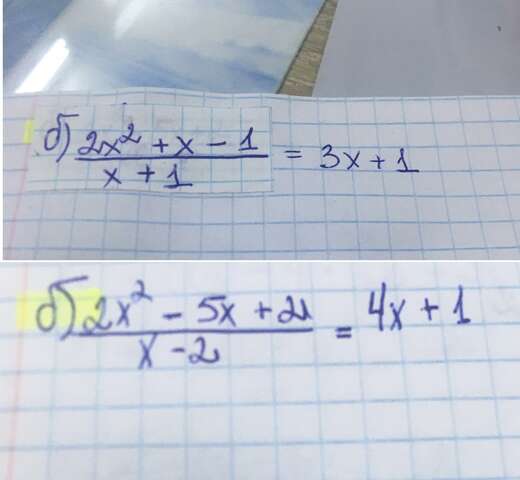 б) (2x² + x - 1)/(x + 1) = 3x + 1
б) (2x² - 5x + 2)/(x - 2) = 4x + 1